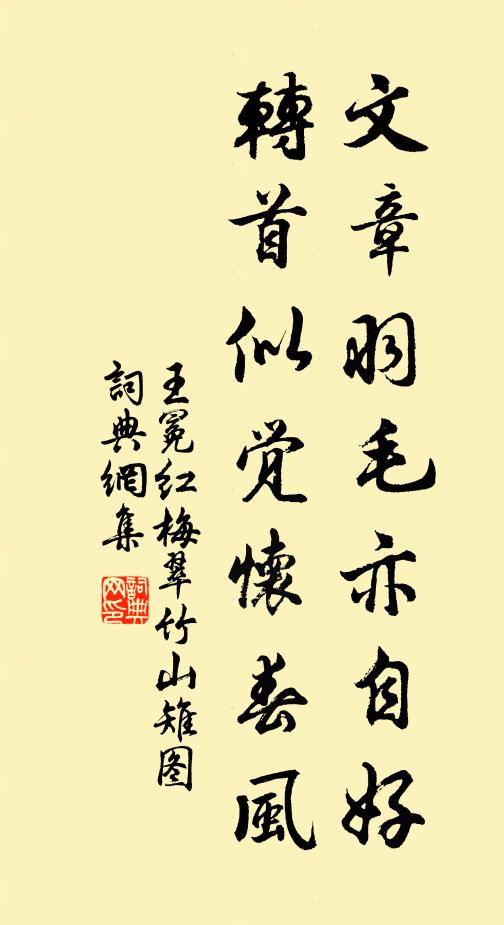 文章羽毛亦自好
轉首似觉懷春風
王冕红梅翠竹山雉图
詞典網集
詞典
网印